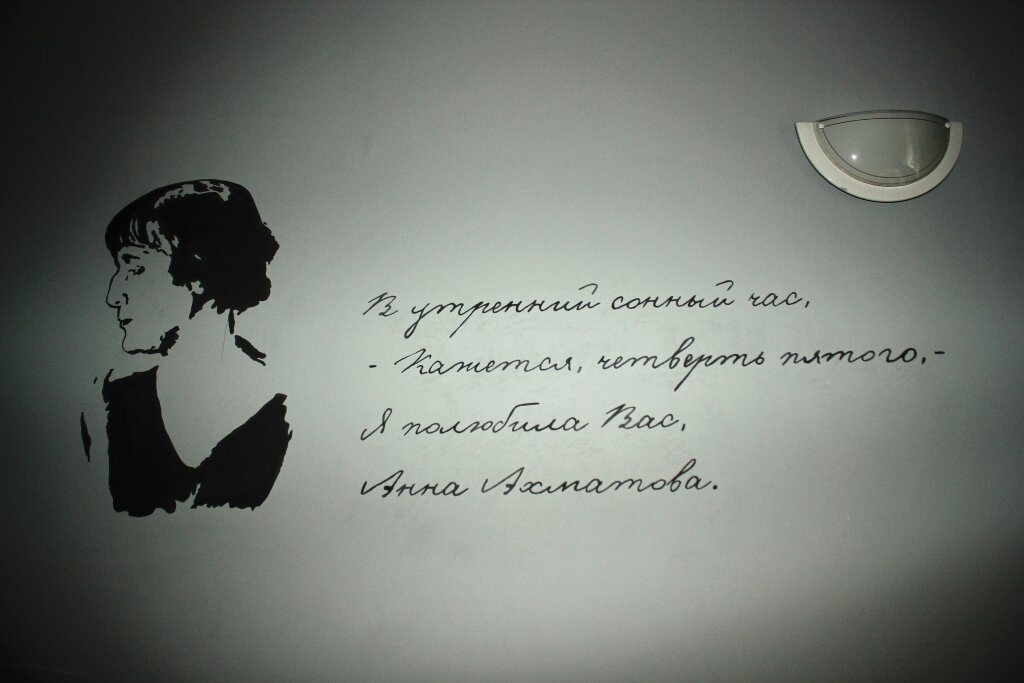 В утренний сонный час,
- Кажется, четверть пятого,-
Я полюбила Вас,
Анна Ахматова.